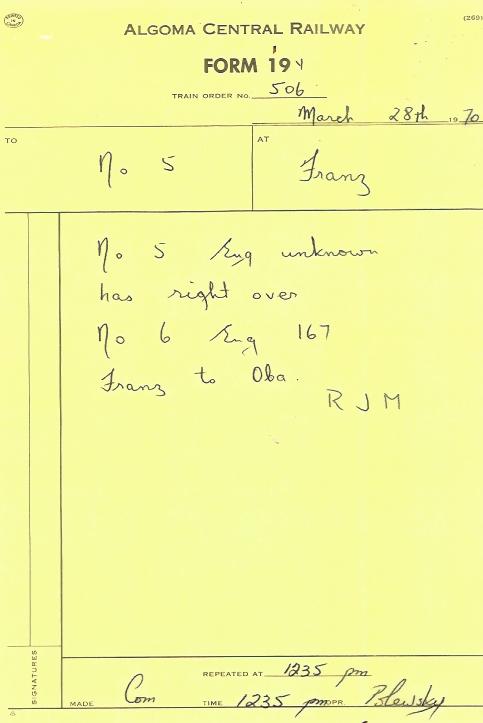 (2691
ALGOMA CENTRAL RAILWAY
FORM 19 Y
TRAIN ORDER NO. 506
March 28th 1970
TO No 5
AT Franz
No 5 Eng unknown
has right over
No 6 Eng 167
Franz to Oba.
R J M
SIGNATURES
REPEATED AT 1235 pm
MADE Com TIME 1235 pm OPR. Polewsky